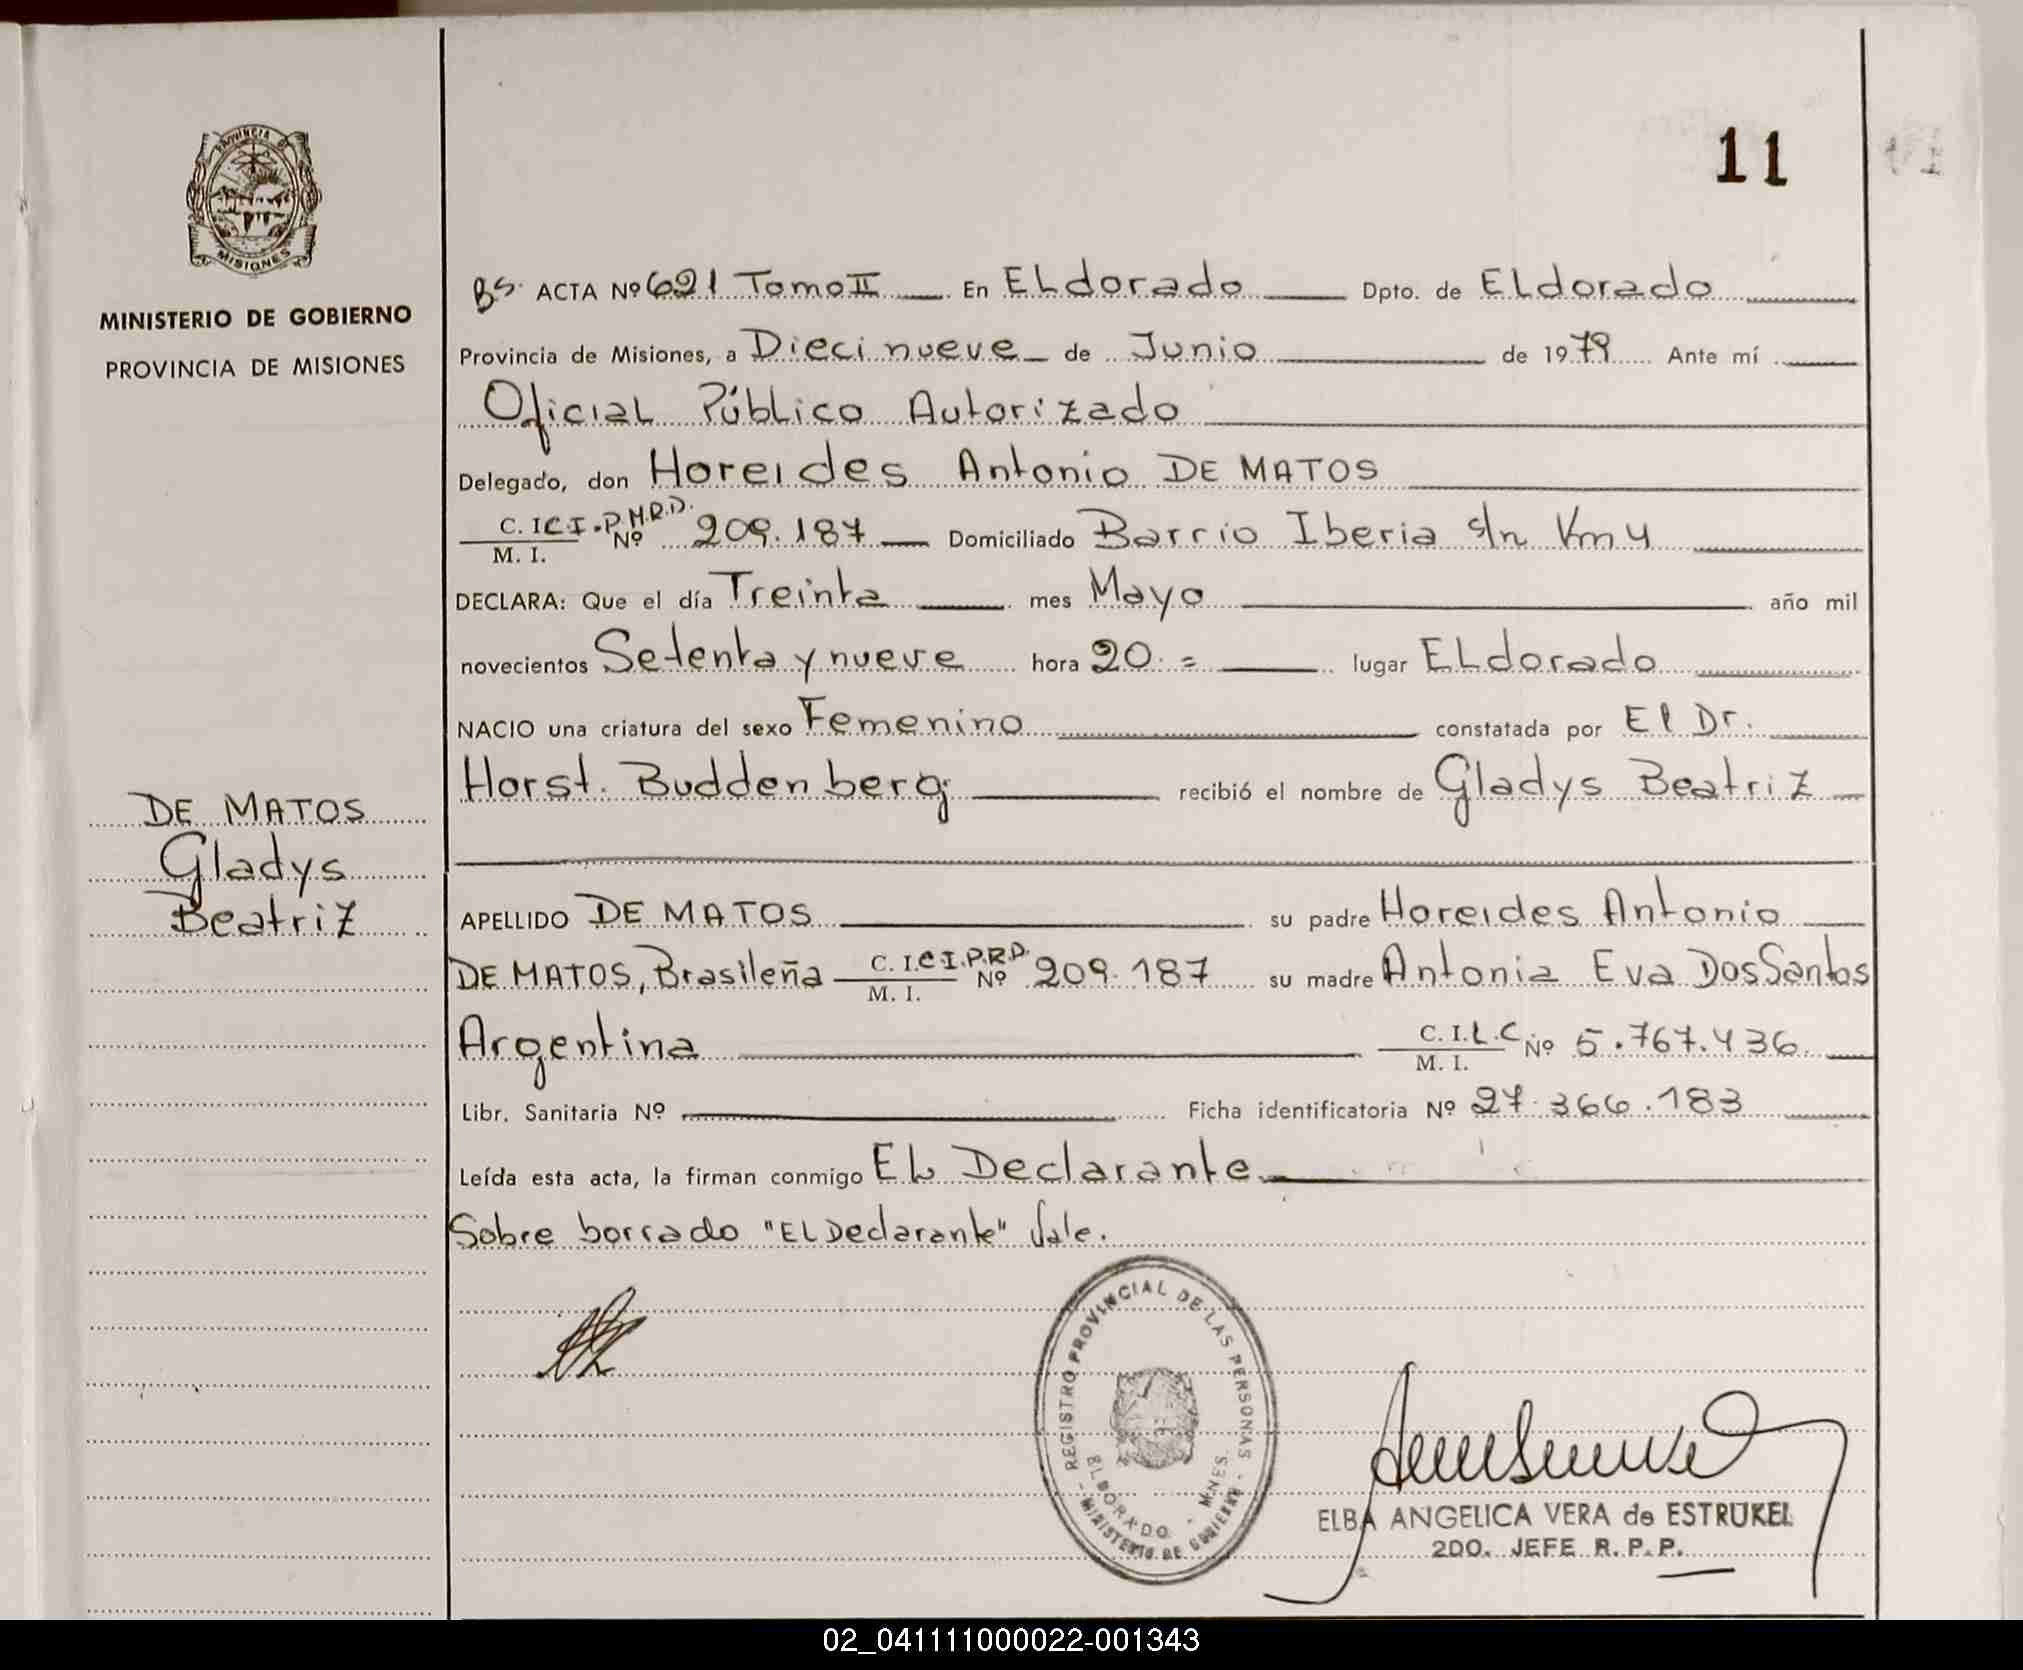 11
PROVINCIA DE
MISIONES
MINISTERIO DE GOBIERNO
PROVINCIA DE MISIONES
DE MATOS
Gladys
Beatriz
Bs. ACTA Nº 621 Tomo II En Eldorado Dpto. de Eldorado
Provincia de Misiones, a Diecinueve de Junio de 1979 Ante mí
Oficial Público Autorizado
Delegado, don Horeides Antonio DE MATOS
C. I. C.I.P.M.R.D. Nº 209.187 Domiciliado Barrio Iberia s/n Km 4
M. I.
DECLARA: Que el día Treinta mes Mayo año mil
novecientos Setenta y nueve hora 20.= lugar Eldorado
NACIO una criatura del sexo Femenino constatada por El Dr.
Horst. Buddenberg recibió el nombre de Gladys Beatriz
APELLIDO DE MATOS su padre Horeides Antonio
DE MATOS, Brasileña C. I. C.I.P.R.D. Nº 209.187 su madre Antonia Eva Dos Santos
M. I.
Argentina C. I. L.C Nº 5.767.436
M. I.
Libr. Sanitaria Nº Ficha identificatoria Nº 27.366.183
Leída esta acta, la firman conmigo El Declarante
Sobre borrado "El Declarante" Vale.
REGISTRO PROVINCIAL DE LAS PERSONAS
ELDORADO - MNES.
- MINISTERIO DE GOBIERNO -
ELBA ANGELICA VERA de ESTRUKEL
2DO. JEFE R. P. P.
02_041111000022-001343